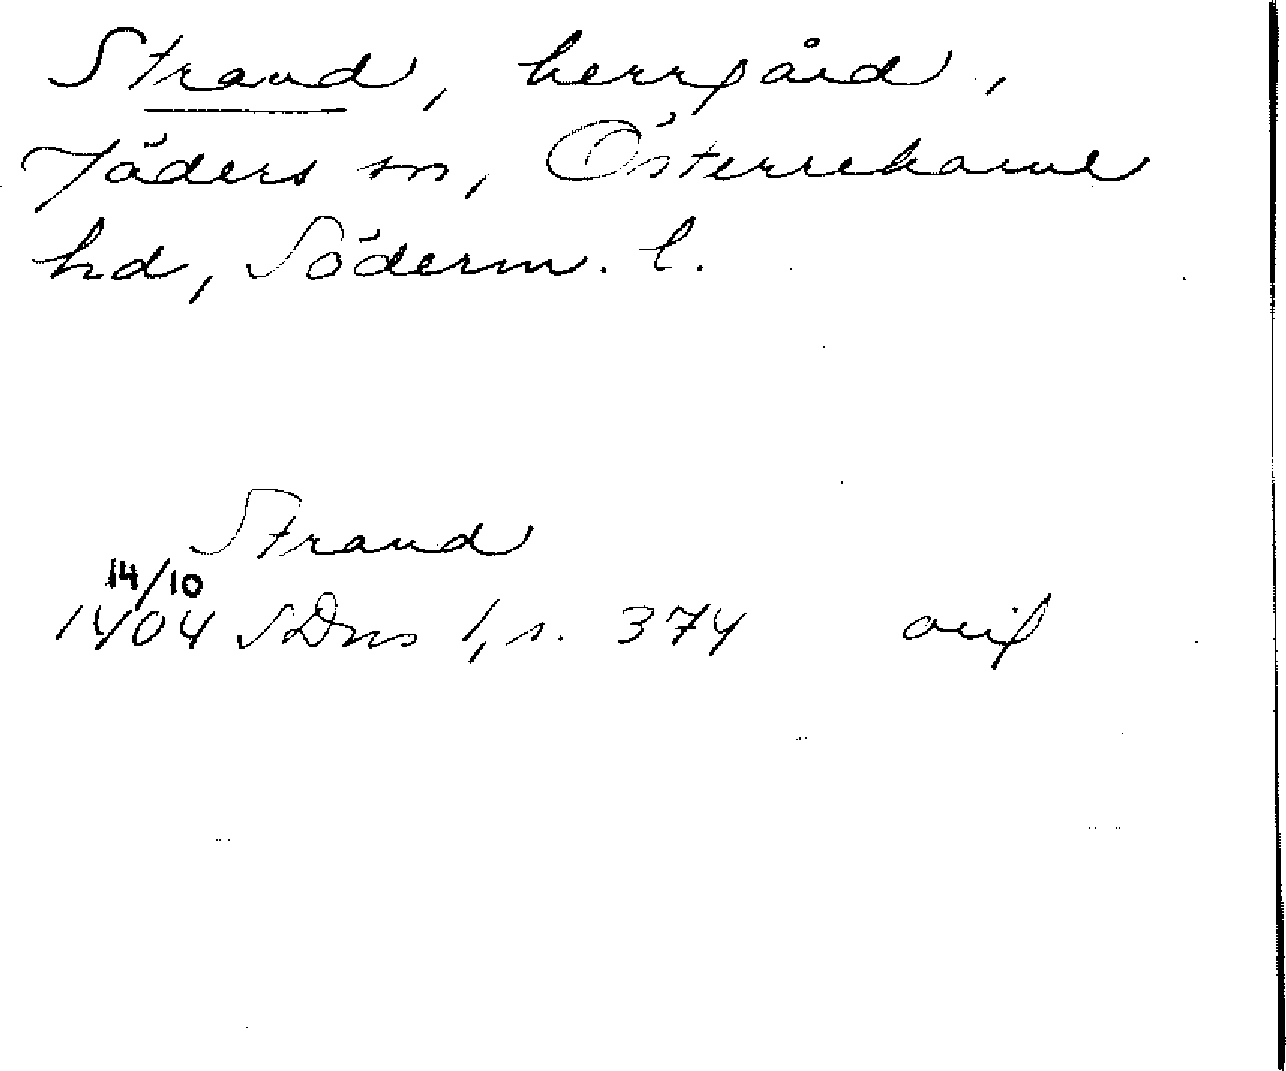 Strand, herrgård,
Jäders sn, Österrekarne
hd, Söderm. l.
Strand
14/10
1404 SDns 1, s. 374 orig